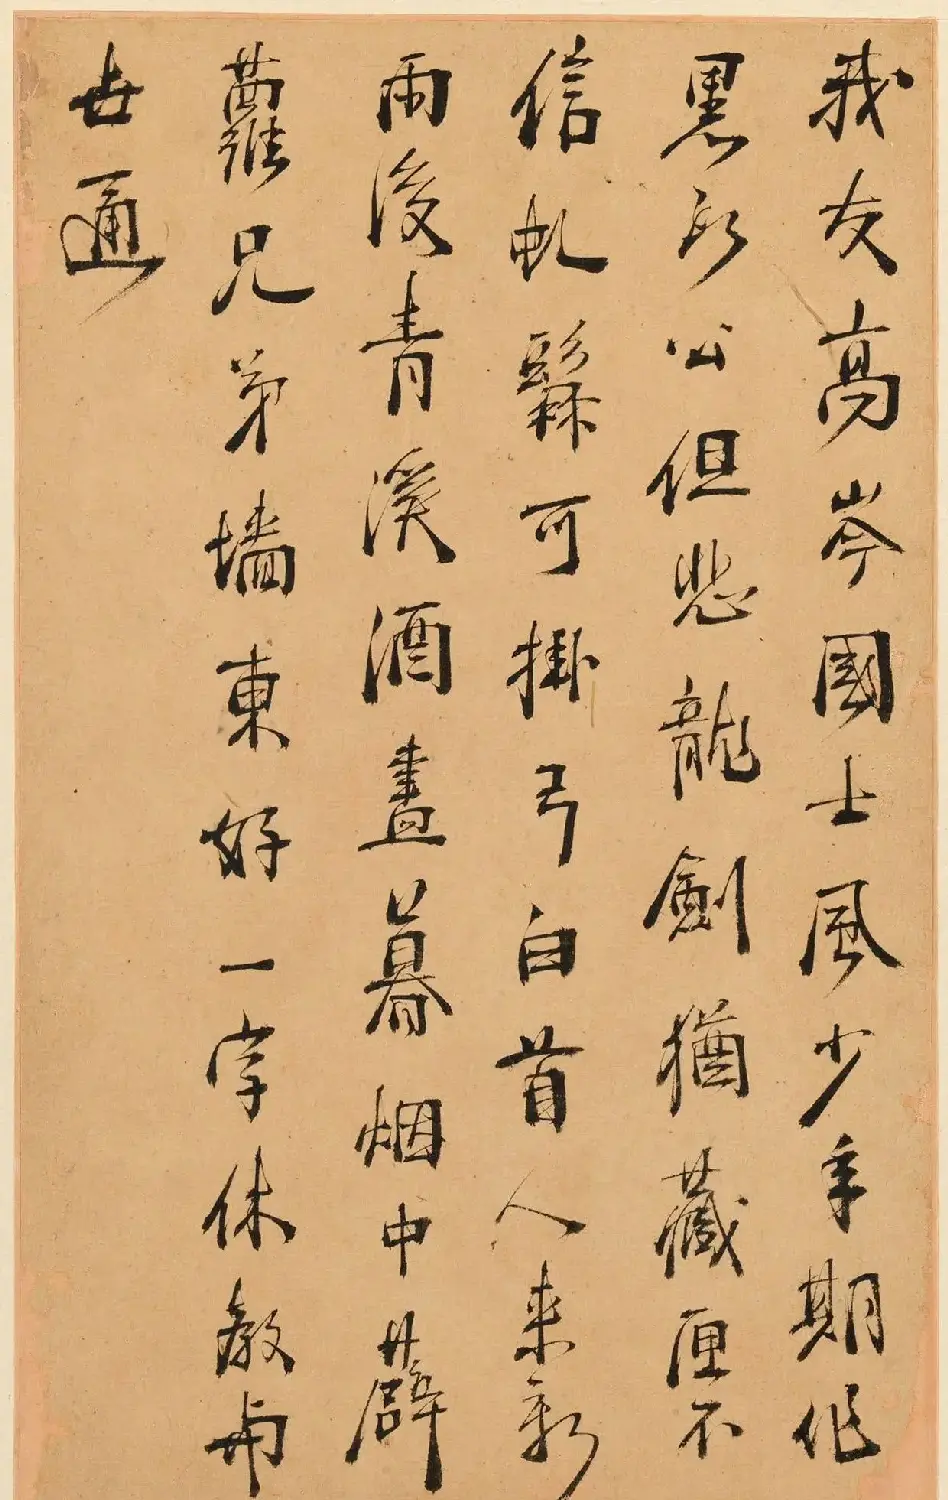 我友高岑國士風少年期作
黑頭公但悲龍劍猶藏匣不
信虬鬚可掛弓白首人來新
雨後青溪酒盡暮烟中薜
蘿兄弟墻東好一字休教與
世通